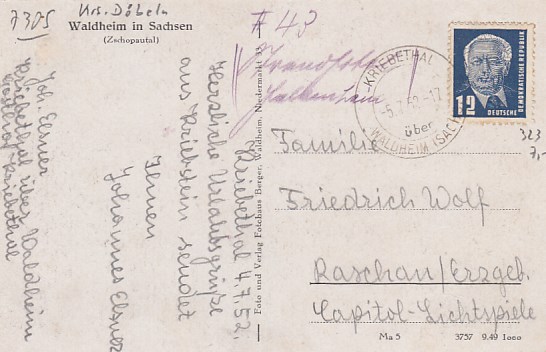 7305
Krs. Döbeln
Waldheim in Sachsen
(Zschopautal)
# 43
KRIEBETHAL
-5.7.52.-17
über
WALDHEIM (SACHS)
12
DEUTSCHE
DEMOKRATISCHE REPUBLIK
323
7,-
Familie
Friedrich Wolf
Raschau/Erzgeb.
Capitol-Lichtspiele
Kriebethal 4.7.52.
Herzliche Urlaubsgrüße
aus Kriebstein sendet
Ihnen
Johannes Elsner
Joh. Elsner
Kriebethal über Waldheim
Foto und Verlag Fotohaus Berger, Waldheim, Niedermarkt
Ma 5 3757 9.49 1000